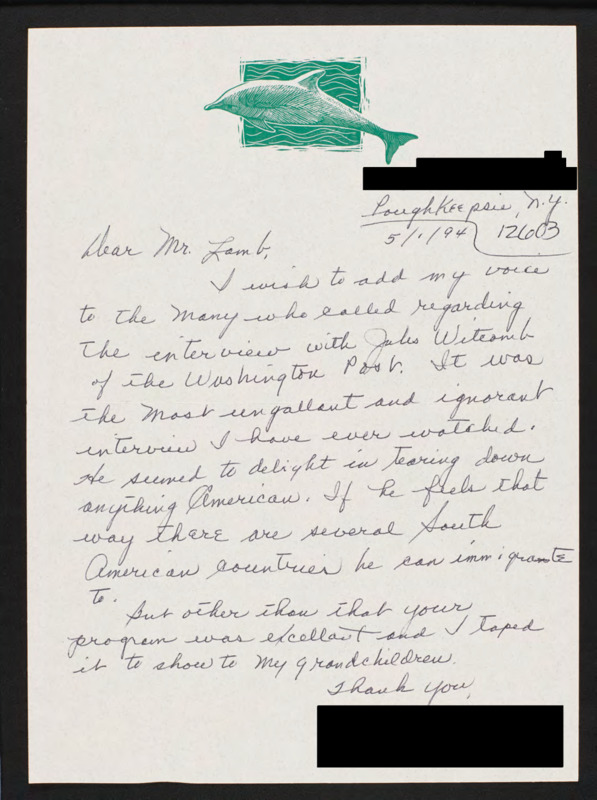 Poughkeepsie, N.Y.
5/1/94 12603
Dear Mr. Lamb,
I wish to add my voice
to the many who called regarding
the interview with Jules Witcomb
of the Washington Post. It was
the most ungallant and ignorant
interview I have ever watched.
He seemed to delight in tearing down
anything American. If he feels that
way there are several South
American countries he can immigrante
to.
But other than that your
program was excellant and I taped
it to show to my grandchildren.
Thank you,